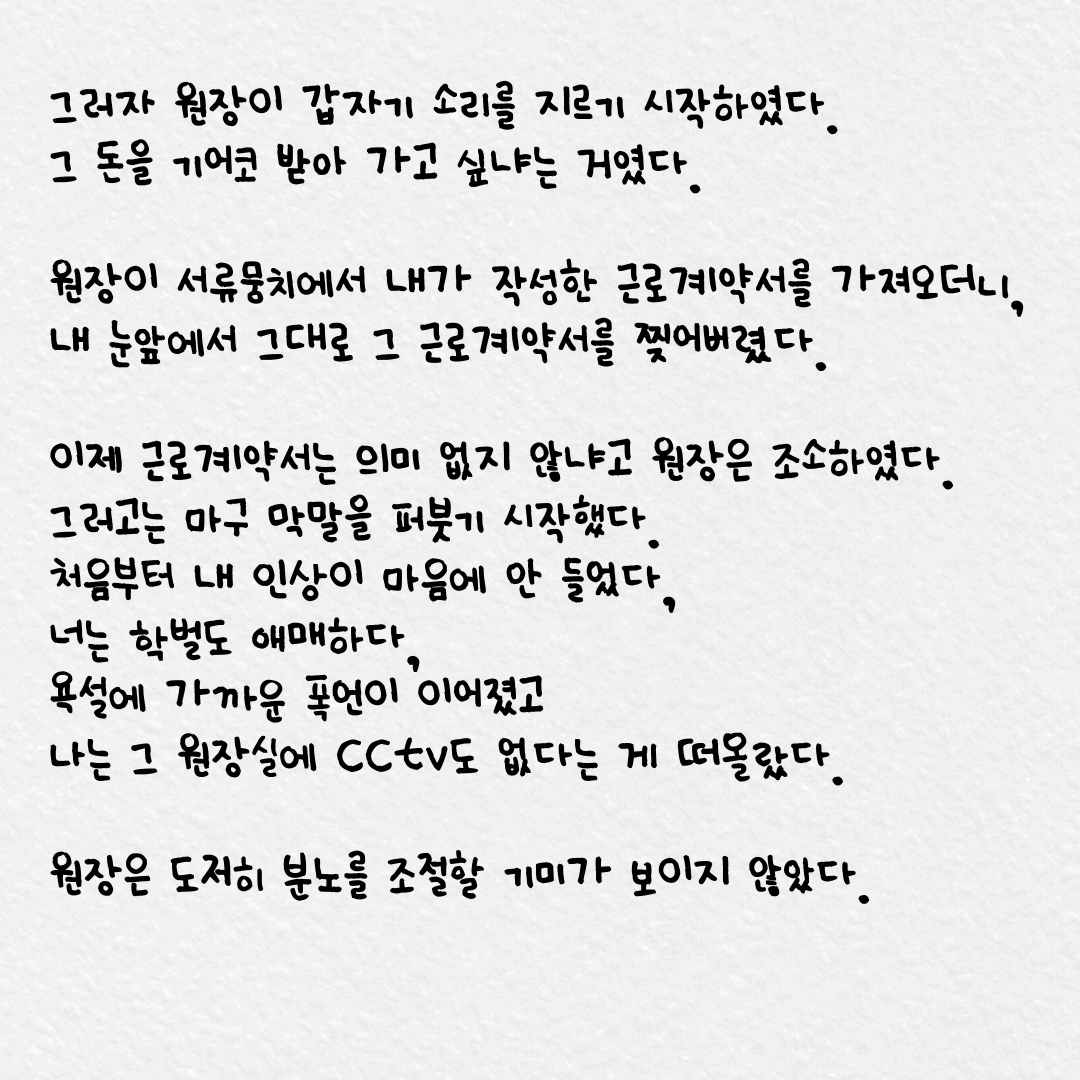 그러자 원장이 갑자기 소리를 지르기 시작하였다.
그 돈을 기어코 받아 가고 싶냐는 거였다.
원장이 서류뭉치에서 내가 작성한 근로계약서를 가져오더니,
내 눈앞에서 그대로 그 근로계약서를 찢어버렸다.
이제 근로계약서는 의미 없지 않냐고 원장은 조소하였다.
그러고는 마구 막말을 퍼붓기 시작했다.
처음부터 내 인상이 마음에 안 들었다,
너는 학벌도 애매하다,
욕설에 가까운 폭언이 이어졌고
나는 그 원장실에 CCtv도 없다는 게 떠올랐다.
원장은 도저히 분노를 조절할 기미가 보이지 않았다.